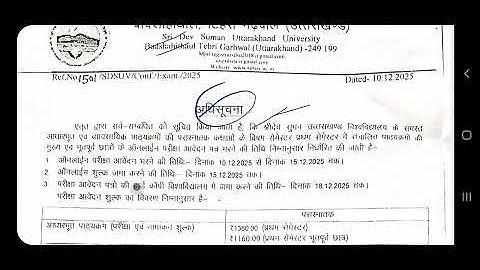 बादशाहीथौल, टिहरी गढ़वाल (उत्तराखण्ड)
Sri Dev Suman Uttarakhand University
Badshahithaul Tehri Garhwal (Uttarakhand) -249 199
Ref.No 1501/SDSUV/Conf./Exam/2025
Dated- 10.12.2025
अधिसूचना
एतद् द्वारा सर्व-सम्बंधित को सूचित किया जाता है, कि श्रीदेव सुमन उत्तराखण्ड विश्वविद्यालय के समस्त
आधारभूत एवं व्यावसायिक पाठ्यक्रमों की परास्नातक कक्षाओं के विषम सेमेस्टर प्रथम सेमेस्टर में संचालित पाठ्यक्रमों की
मुख्य एवं भूतपूर्व छात्रों के ऑनलाईन परीक्षा आवेदन पत्र भरने की तिथि निम्नानुसार निर्धारित की जाती है:-
1 ऑनलाईन परीक्षा आवेदन भरने की तिथि:- दिनांक 10.12.2025 से दिनांक 15.12.2025 तक।
2 ऑनलाईन शुल्क जमा करने की तिथि- दिनांक 15.12.2025 तक।
3 परीक्षा आवेदन पत्रों की हार्ड कॉपी विश्वविद्यालय में जमा करने की तिथि- दिनांक 18.12.2025 तक।
परीक्षा आवेदन शुल्क का विवरण निम्नानुसार है:-
परास्नातक
आधारभूत पाठ्यक्रम (परीक्षा एवं नामांकन शुल्क)
₹1360.00 (प्रथम सेमेस्टर)
₹1160.00 (प्रथम सेमेस्टर भूतपूर्व छात्र)